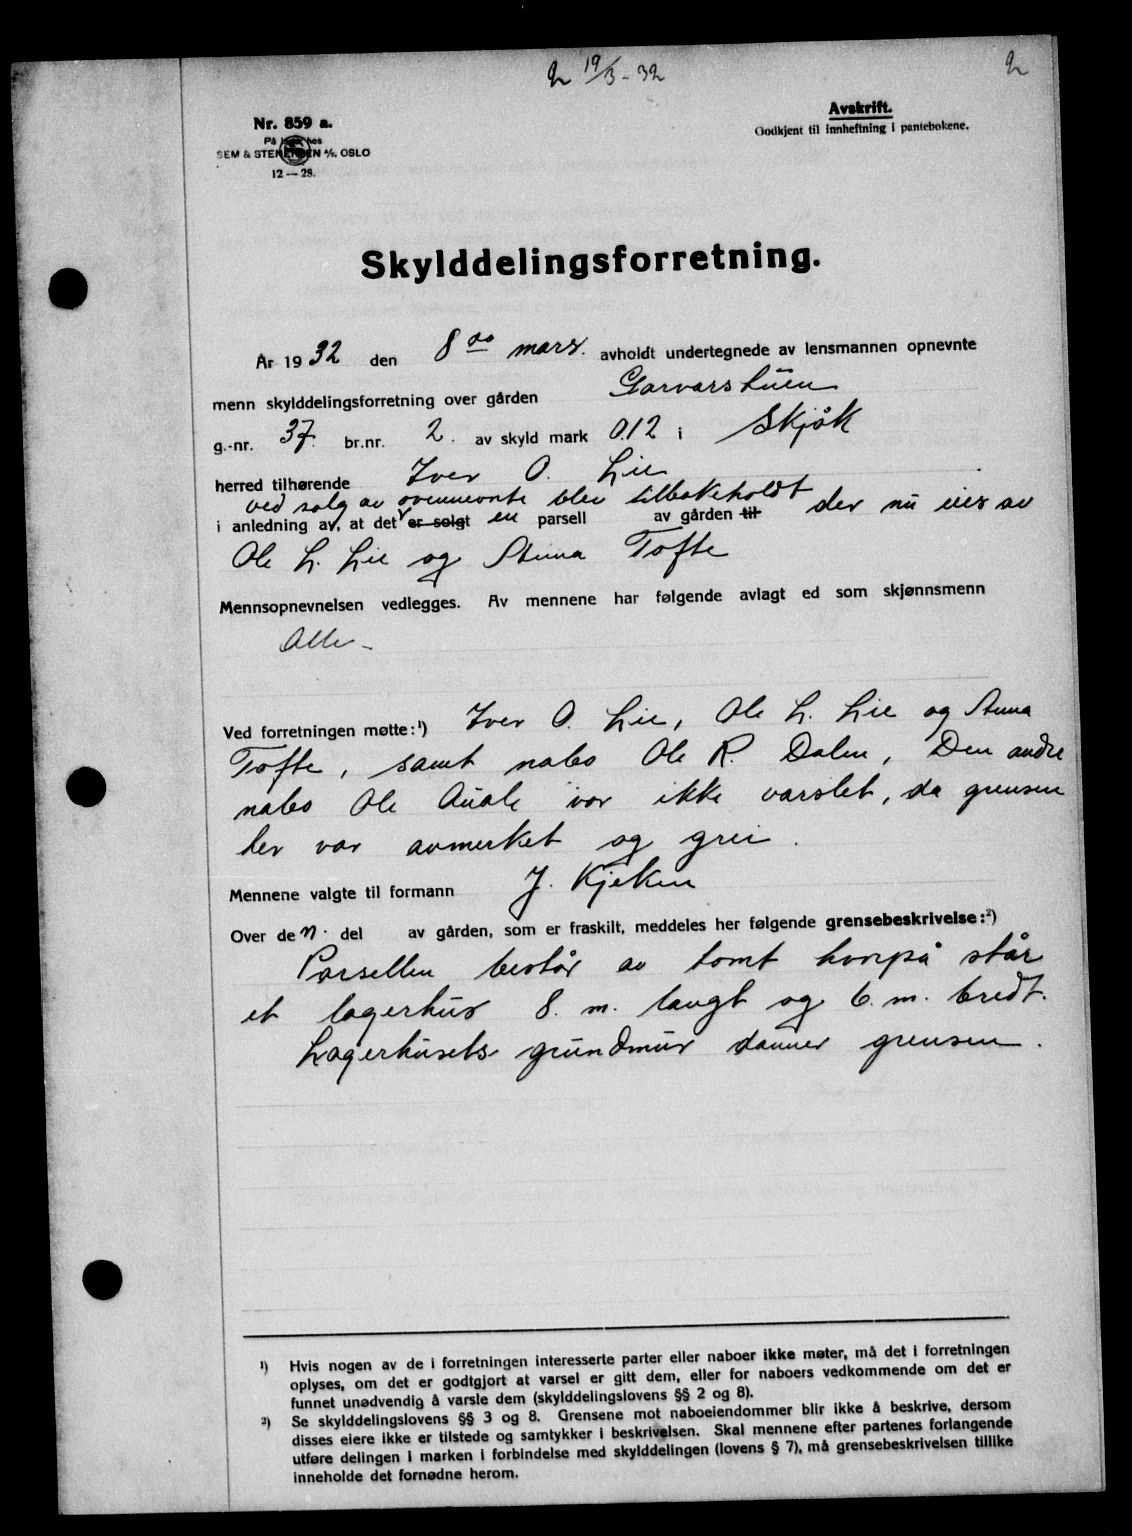 2 19/3-32
2
Avskrift.
Godkjent til innheftning i pantebokene.
Nr. 859 a.
På hos
SEM & STENERSEN A/S, OSLO
12 — 28.
Skylddelingsforretning.
År 1932 den 8de mars. avholdt undertegnede av lensmannen opnevnte
menn skylddelingsforretning over gården Garvarstuen
g.-nr. 37. br.nr. 2. av skyld mark 0.12 i Skjåk
herred tilhørende Iver O. Lie
ved salg av ovennevnte blev tilbakeholdt
i anledning av, at det er solgt en parsell av gården til der nu eies av
Ole L. Lie og Anna Tofte
Mennsopnevnelsen vedlegges. Av mennene har følgende avlagt ed som skjønnsmenn
Alle -
Ved forretningen møtte:¹) Iver O. Lie, Ole L. Lie og Anna
Tofte, samt nabo Ole R. Dalen, Den andre
nabo Ole Aúale var ikke varslet, da grensen
her var avmerket og grei.
Mennene valgte til formann J. Kjeken
Over den. del av gården, som er fraskilt, meddeles her følgende grensebeskrivelse:²)
Parsellen består av tomt hvorpå står
et lagerhus 8. m. langt og 6. m. bredt.
Lagerhusets grundmur danner grensen.
¹) Hvis nogen av de i forretningen interesserte parter eller naboer ikke møter, må det i forretningen
oplyses, om det er godtgjort at varsel er gitt dem, eller for naboers vedkommende om det er
funnet unødvendig å varsle dem (skylddelingslovens §§ 2 og 8).
²) Se skylddelingslovens §§ 3 og 8. Grensene mot naboeiendommer blir ikke å beskrive, dersom
disses eiere ikke er tilstede og samtykker i beskrivelsen. Skal mennene efter partenes forlangende
utføre delingen i marken i forbindelse med skylddelingen (lovens § 7), må grensebeskrivelsen tillike
inneholde det fornødne herom.